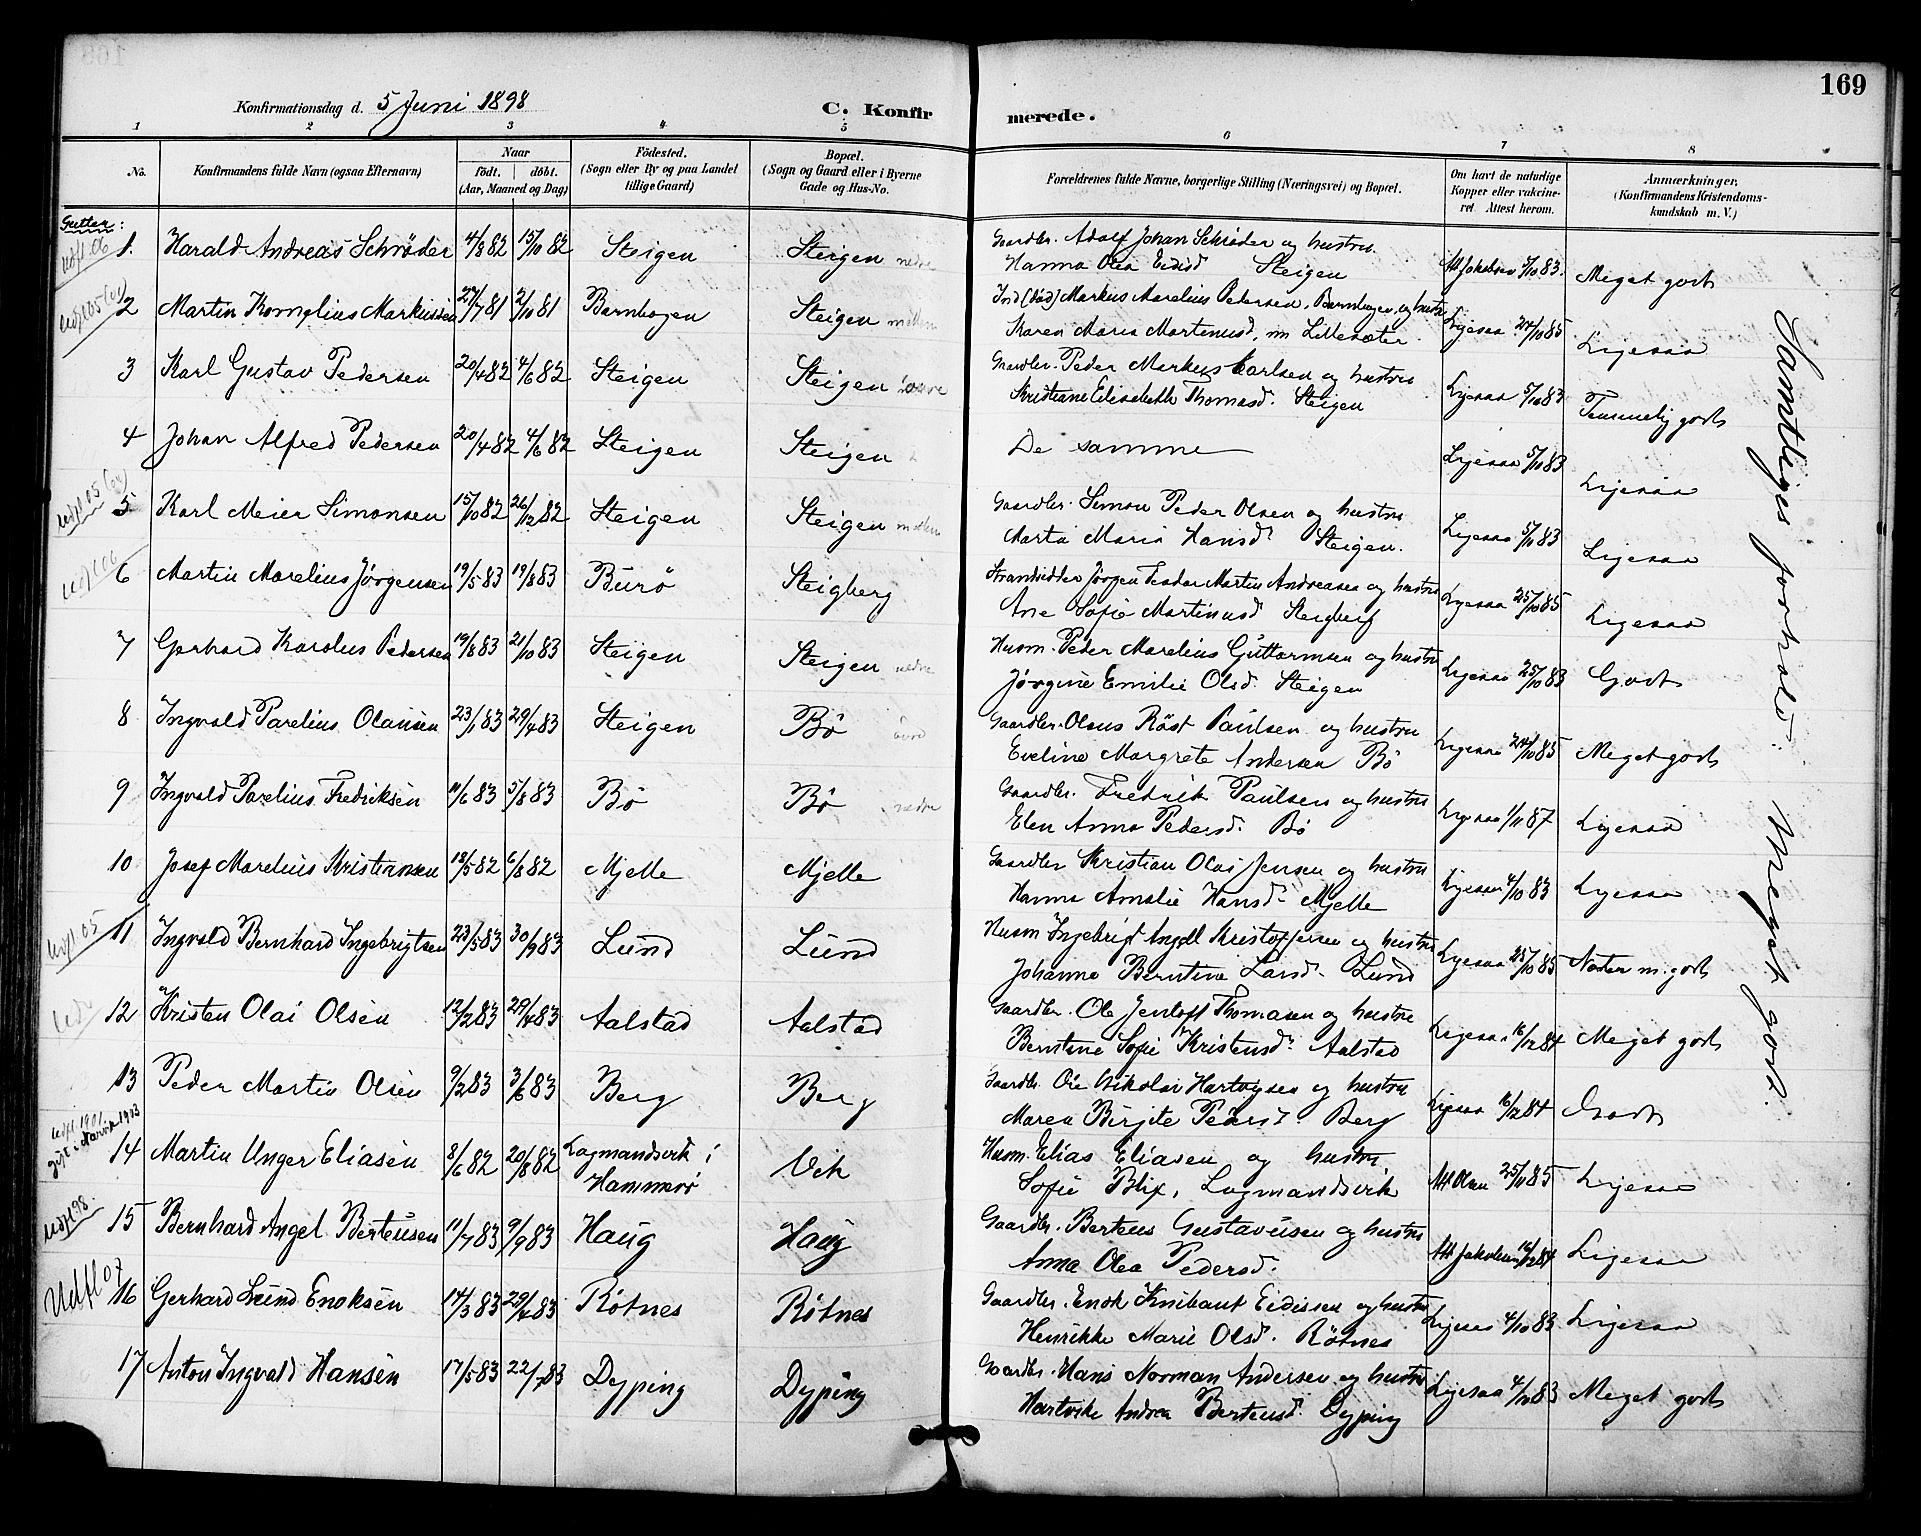 169
Konfirmationsdag d. 5 Juni 1898
C. Konfirmerede.
1 2 3 4 5 6 7 8
No.
Konfirmandens fulde Navn (ogsaa Efternavn)
Naar
födt. döbt.
(Aar, Maaned og Dag)
Födested.
(Sogn eller By og paa Landet
tillige Gaard)
Bopæl.
(Sogn og Gaard eller i Byerne
Gade og Hus-No.
Forældrenes fulde Navne, borgerlige Stilling (Næringsvei) og Bopæl.
Om havt de naturlige
Kopper eller vakcine-
ret. Attest herom.
Anmærkninger.
(Konfirmandens Kristendoms-
kundskab m. V.)
Gutter:
udfl. 06 1. Harald Andreas Schrøder 4/8 82 15/10 82 Steigen Steigen nedre Gaardbr. Adolf Johan Schrøder og hustru Att Jakobsen 5/10 83. Meget godt
Hanna Olea Eidisd Steigen
udfl 05 2 Martin Kornelius Markussen 27/7 81 2/10 81 Barnhogen Steigen mellem Ind (död) Markus Marelius Pedersen, Barnhogen, og hustru Ligesaa 24/10 85 Ligesaa
Karen Maria Martinusd, nu Lillesæter
3 Karl Gustav Pedersen 20/4 82 4/6 82 Steigen Steigen Gaardbr. Peder Markus Karlsen og hustru Ligesaa 5/10 83 Temmelig godt
Kristiane Elisabeth Thomasd. Steigen
4 Johan Alfred Pedersen 20/4 82 4/6 82 Steigen Steigen De samme Ligesaa 5/10 83 Ligesaa
udfl 05 5 Karl Meier Simonsen 15/10 82 26/12 82 Steigen Steigen mellem Gaardbr. Simon Peder Olsen og hustru Ligesaa 5/10 83 Ligesaa
Marta Maria Hansd. Steigen.
udfl 06 6 Martin Marelius Jørgensen 19/5 83 19/8 83 Burø Steigberg Strandsidder Jørgen Teodor Martin Andreasen og hustru Ligesaa 25/10 85 Ligesaa
Ane Sofie Martinusd Steigberg
7 Gerhard Karolus Pedersen 19/8 83 21/10 83 Steigen Steigen nedre Husm. Peder Marelius Guttormsen og hustru Ligesaa 25/10 83 Godt
Jørgine Emilie Olsd. Steigen
8 Ingvald Parelius Olausen 23/1 83 29/4 83 Steigen Bö övre Gaardbr. Olaus Röst Paulsen og hustru Ligesaa 24/10 85 Meget godt
Eveline Margrete Andersen Bö
9 Ingvald Parelius Fredriksen 11/6 83 5/8 83 Bö Bö nedre Gaardbr. Fredrik Paulsen og hustru Ligesaa 1/11 87 Ligesaa
Elen Anna Pedersd. Bö
10 Josef Marelius Kristiansen 18/5 82 6/8 82 Mjelle Mjelle Gaardbr Kristian Olai Jensen og hustru Ligesaa 4/10 83 Ligesaa
Hanna Amalie Hansd. Mjelle
udfl. 05 11 Ingvald Bernhard Ingebrigtsen 23/5 83 30/9 83 Lund Lund Husm Ingebrigt Angell Kristoffersen og hustru Ligesaa 25/10 85 Næsten m. godt
Johanna Berntine Larsd. Lund
12 Kristen Olai Olsen 12/2 83 29/4 83 Aalstad Aalstad Gaardbr. Ole Jentoft Thomasen og hustru Ligesaa 16/12 84 Meget godt
Berntine Sofie Kristensd. Aalstad
13 Peder Martin Olsen 9/2 83 3/6 83 Berg Berg Gaardbr. Ole Nikolai Hartvigsen og hustru Ligesaa 16/2 84 Godt
Maren Birgite Pedersd. Berg
udfl. 1901
gift i Narvik 1903
14 Martin Unger Eliasen 8/6 82 20/8 82 Lagmandsvik i Hammerö Vik Husm. Elias Eliasen og hustru Att Olsen 25/11 85 Ligesaa
Sofie Blix, Lagmandsvik
udfl 98. 15 Bernhard Angel Berteusen 11/7 83 9/9 83 Haug Haug Gaardbr. Berteus Gustavusen og hustru Att Jakobsen 16/2 84 Ligesaa
Anna Olea Pedersd.
Udfl 07 16 Gerhard Lund Enoksen 14/3 83 29/4 83 Röttnes Röttnes Gaardbr. Enok Knibaut Eidissen og hustru Ligesaa 4/10 83 Ligesaa
Henrikke Marie Olsd. Rötnes
17 Anton Ingvald Hansen 17/5 83 22/7 83 Dyping Dyping Gaardbr. Hans Norman Andersen og hustru Ligesaa 4/10 83 Meget godt
Hartvike Andrea Berteusd. Dyping
Samtliges forhold: Meget godt.